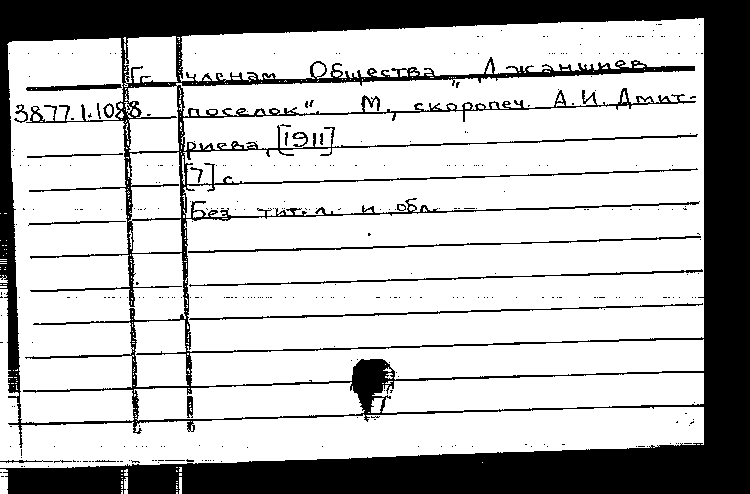 Гг. членам Общества „Джаншиев
3877.1.1088. поселок“. М., скоропеч. А.И. Дмит-
риева, [1911]
[7] с.
Без тит. л. и обл.